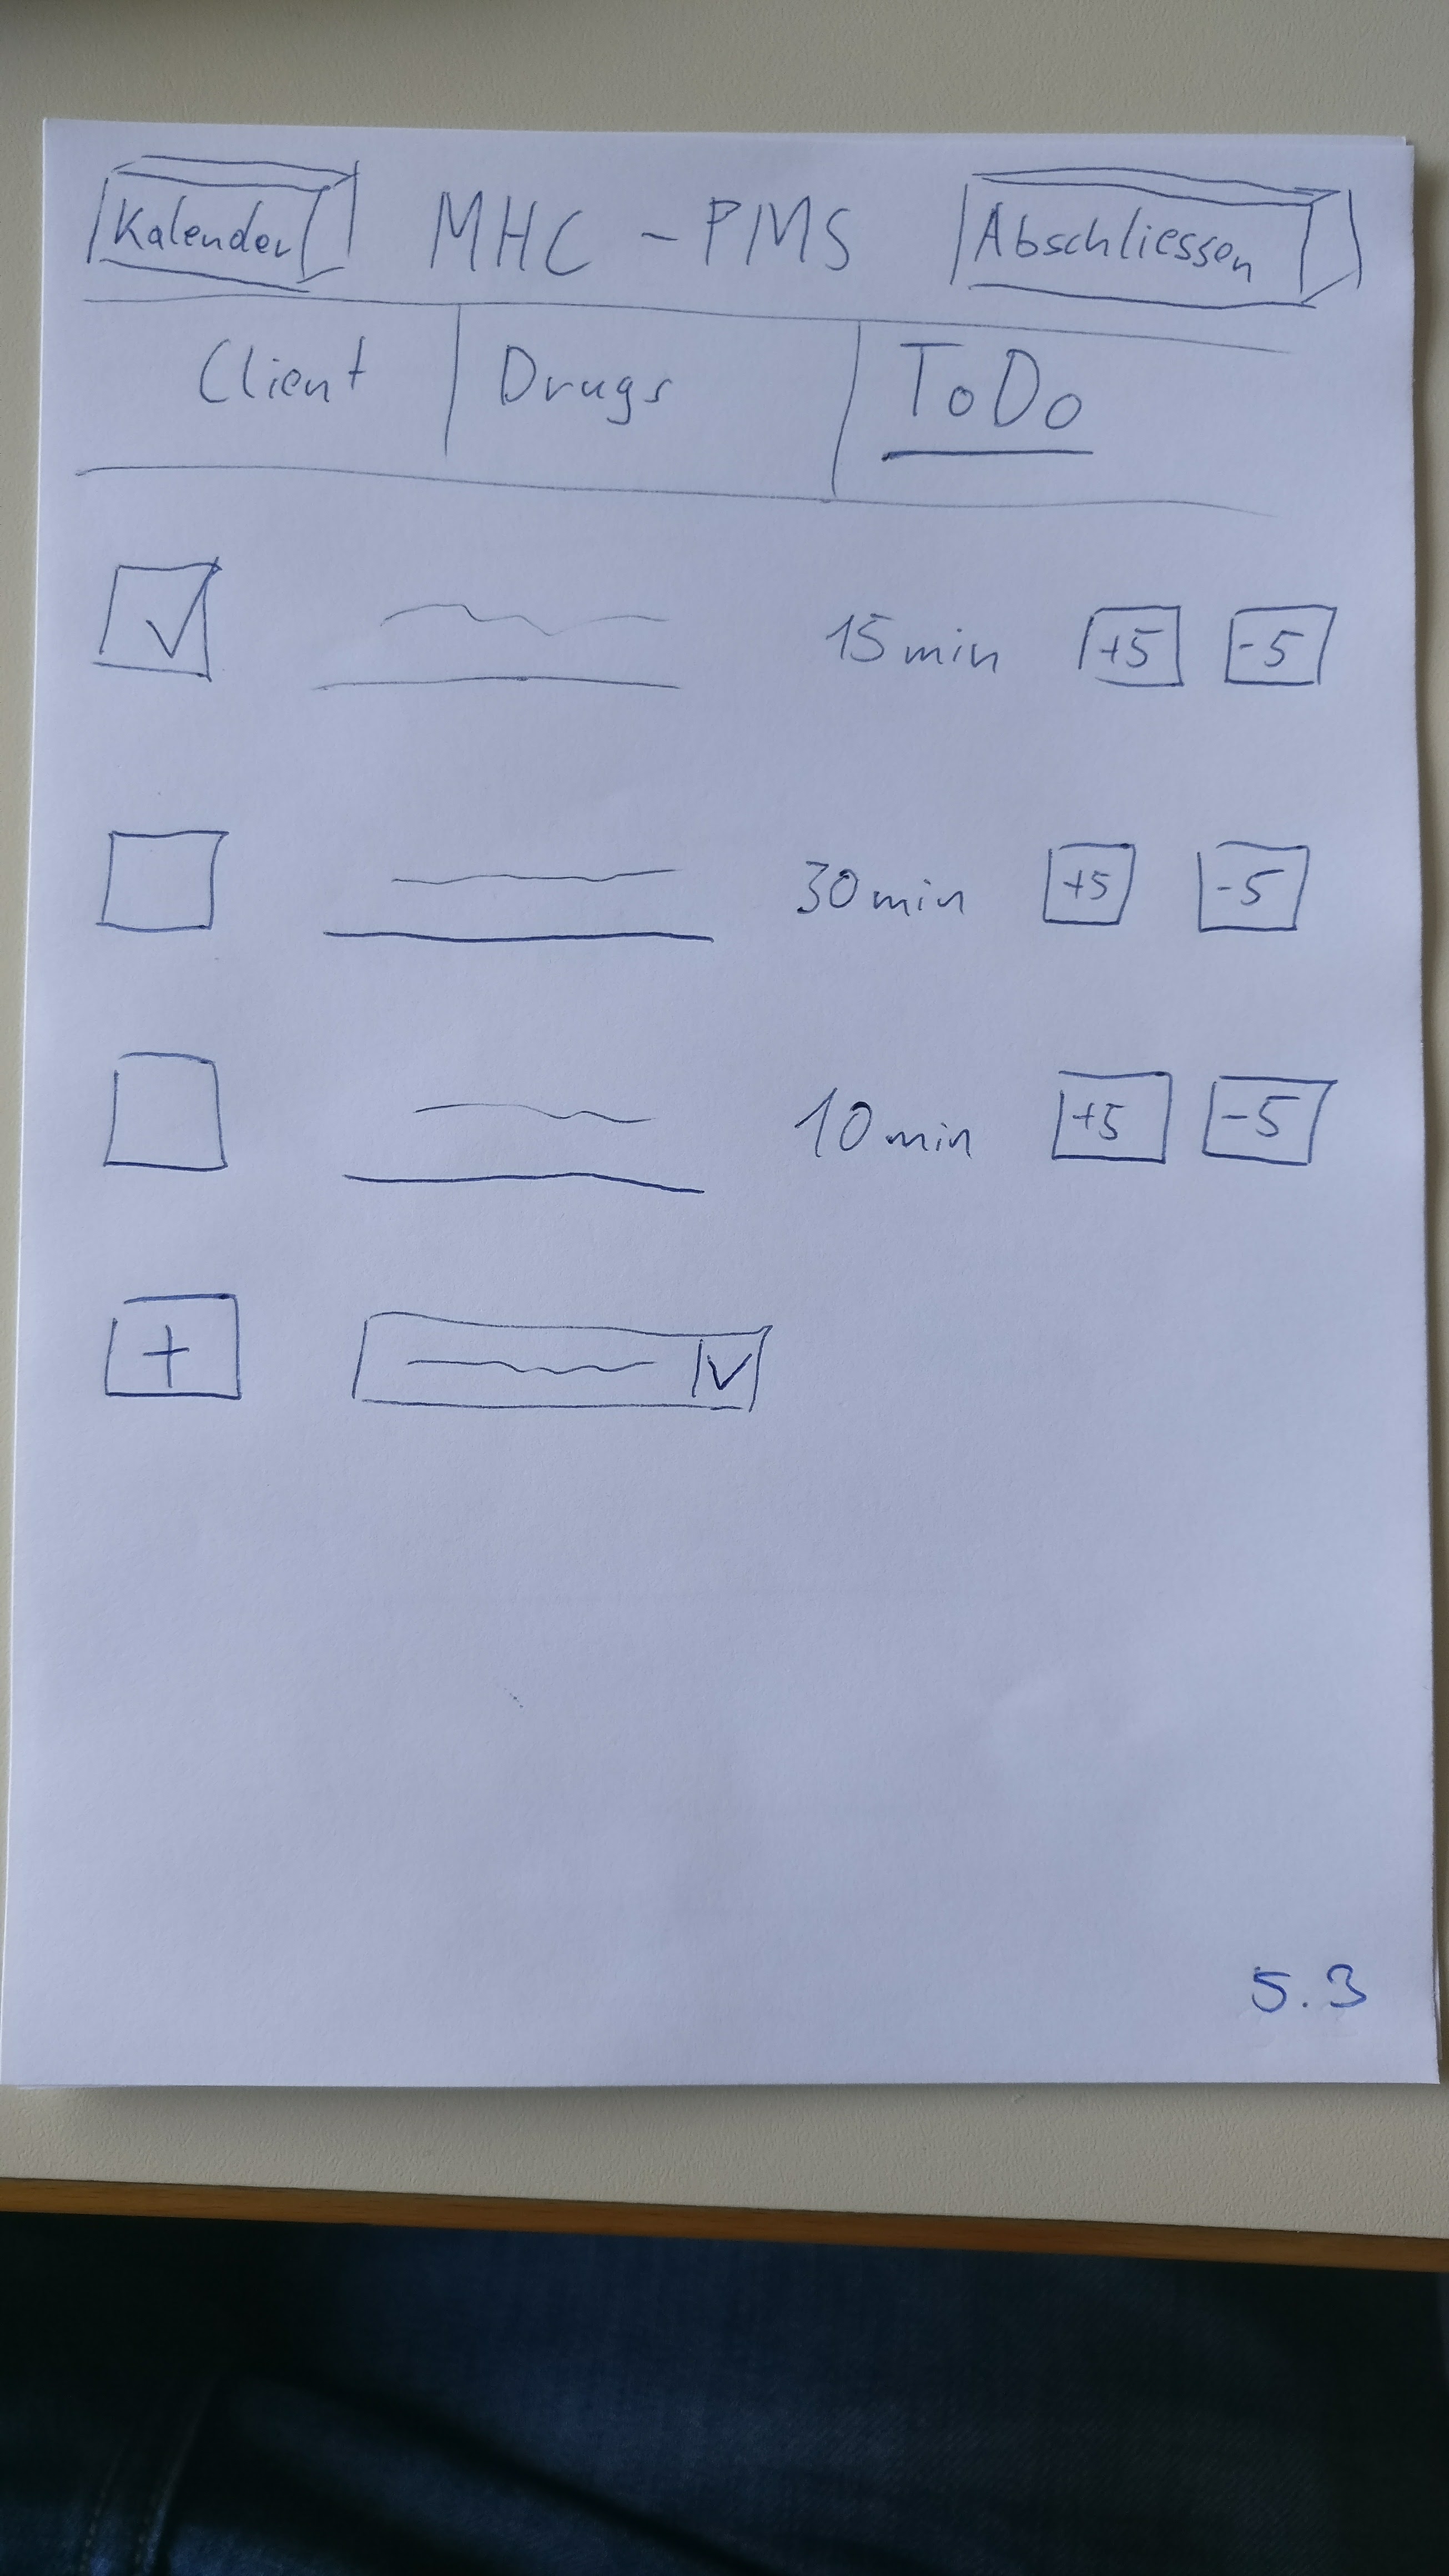 Kalender MHC - PMS Abschliessen
Client Drugs ToDo
15 min +5 -5
30 min +5 -5
10 min +5 -5
+
5.3